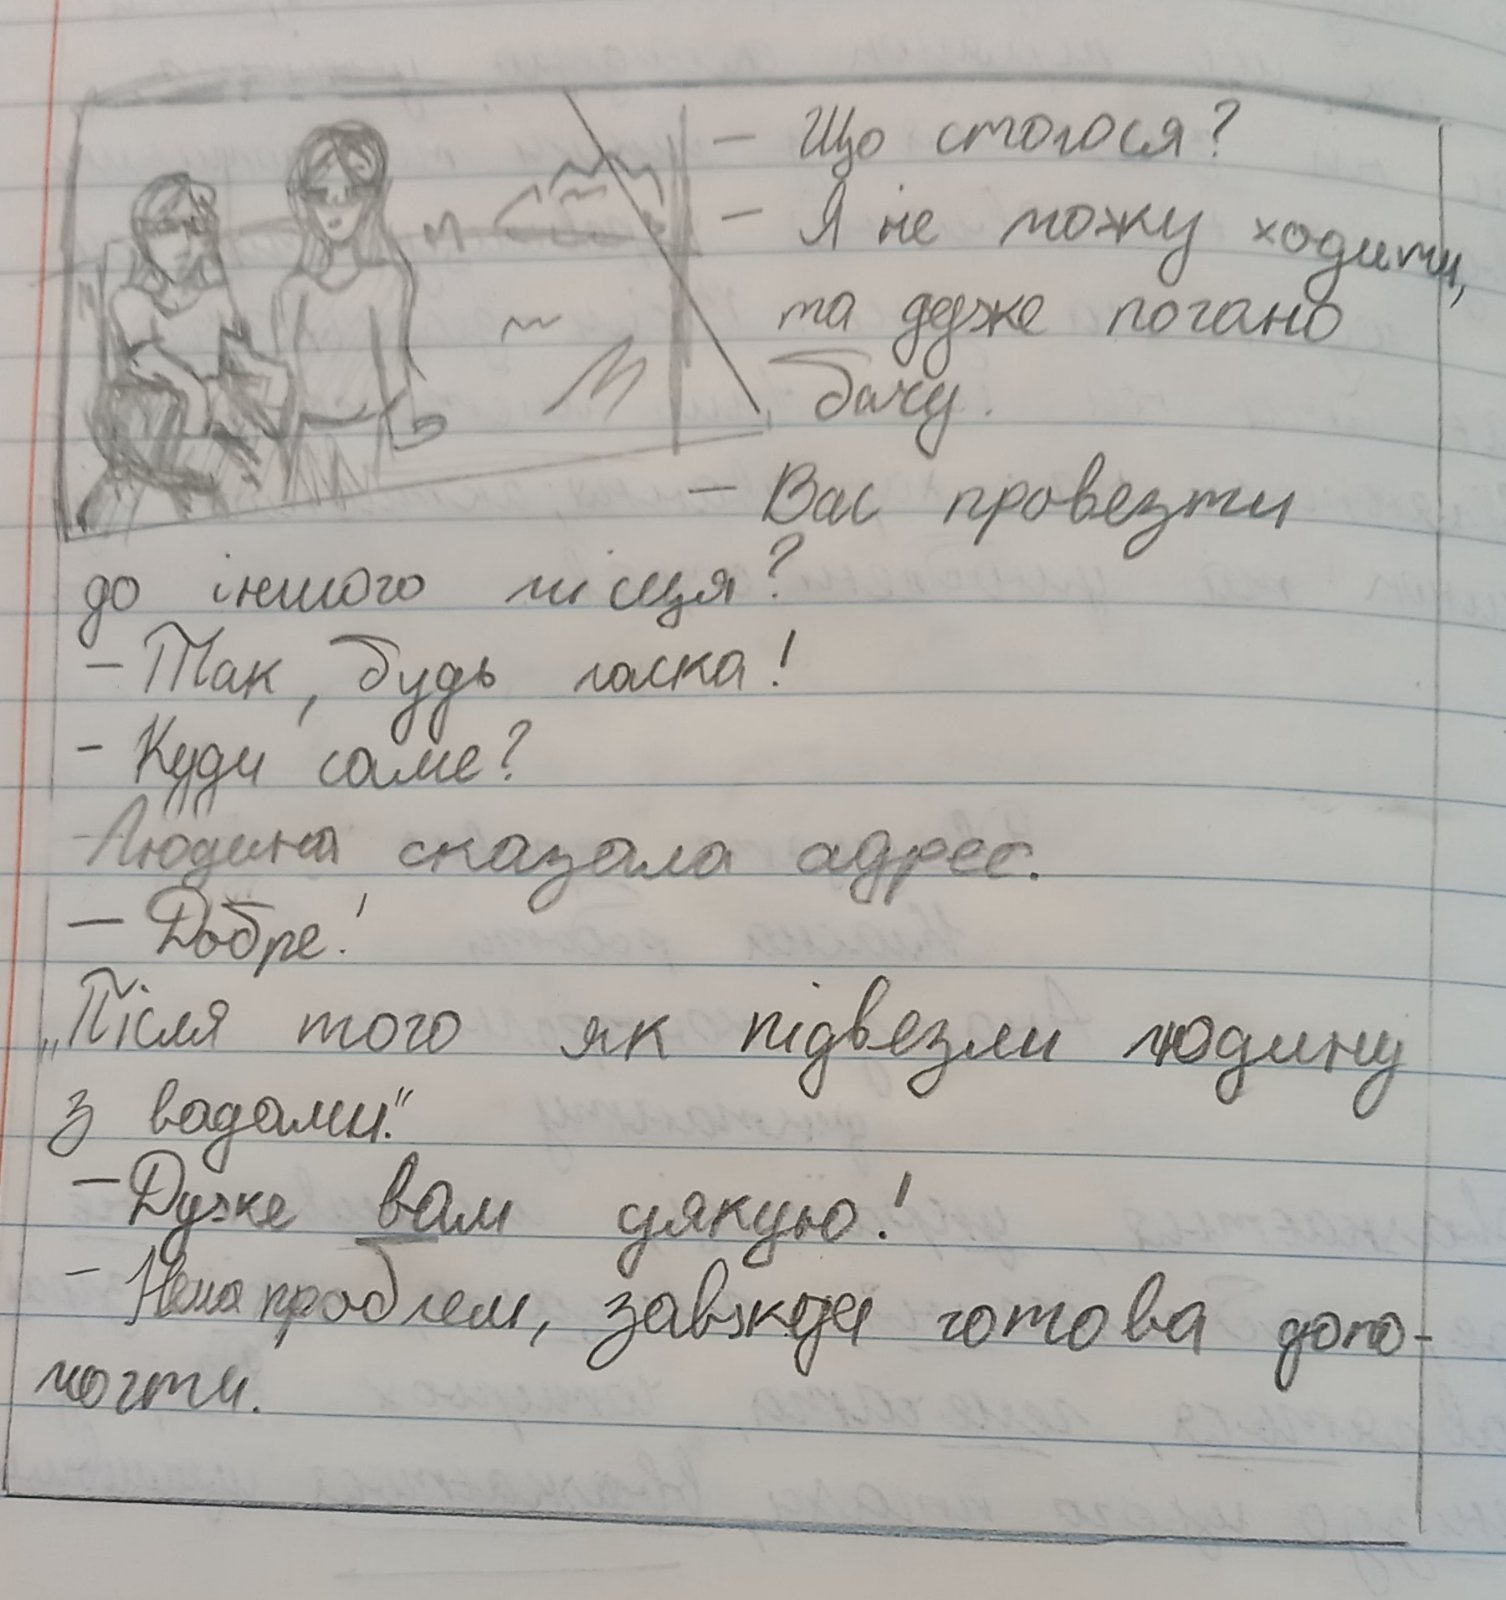 — Що сталося?
— Я не можу ходити,
та дуже погано
бачу.
— Вас провезти
до іншого місця?
— Так, будь ласка!
— Куди саме?
- Людина сказала адрес.
— Добре!
„Після того як підвезли людину
з вадами."
— Дуже вам дякую!
— Нема проблем, завжди готова допо-
могти.